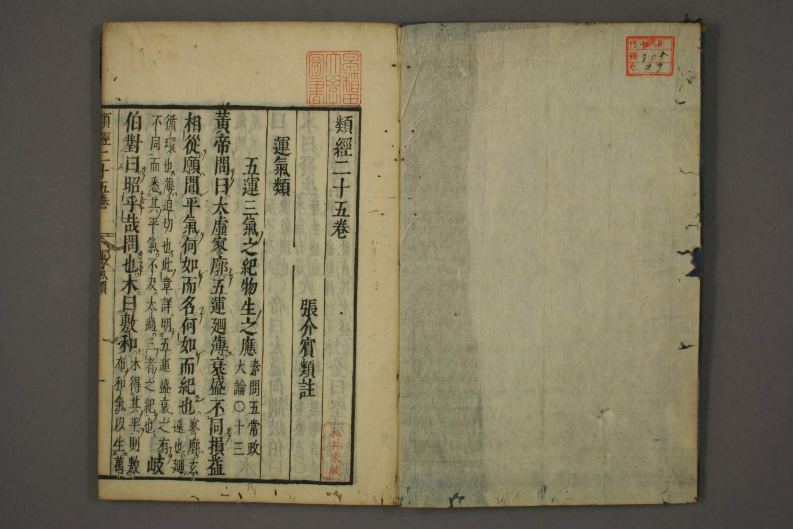 類經二十五卷
張介賓類註
運氣類
五運三氣之紀物生之應素問五常政大論○十三
黃帝問曰太虛寥廓五運廻薄衰盛不同損益
相從願聞平氣何如而名何如而紀也寥廓玄遠也廻
循環也薄迫切也此章詳明五運盛衰之有
不同而悉其平氣不及太過三者之紀也岐
伯對曰昭乎哉問也木曰敷和木得其平則敷布和氣以生萬
類經二十五卷